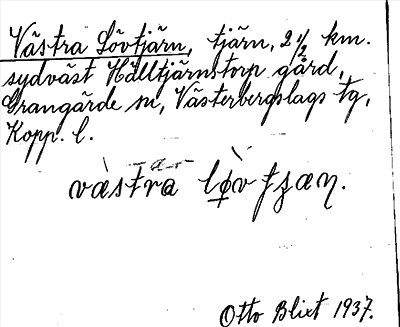 Västra Lövtjärn, tjärn, 2 1/2 km.
sydväst Hälltjärnstorp gård,
Grangärde sn, Västerbergslags tg,
Kopp. l.
-ar
västra løv tjæṇ.
Otto Blixt 1937.